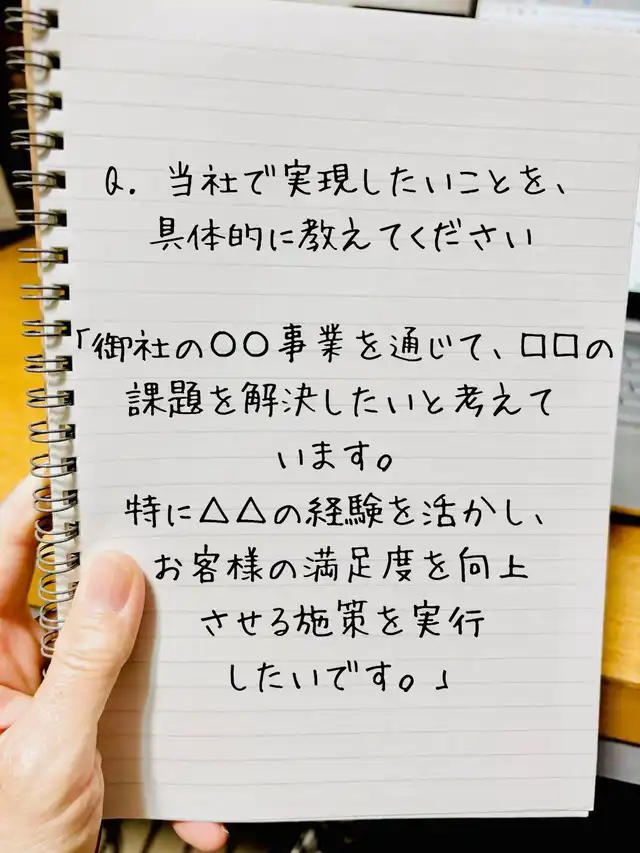 Q. 当社で実現したいことを、
具体的に教えてください
「御社の〇〇事業を通じて、□□の
課題を解決したいと考えて
います。
特に△△の経験を活かし、
お客様の満足度を向上
させる施策を実行
したいです。」